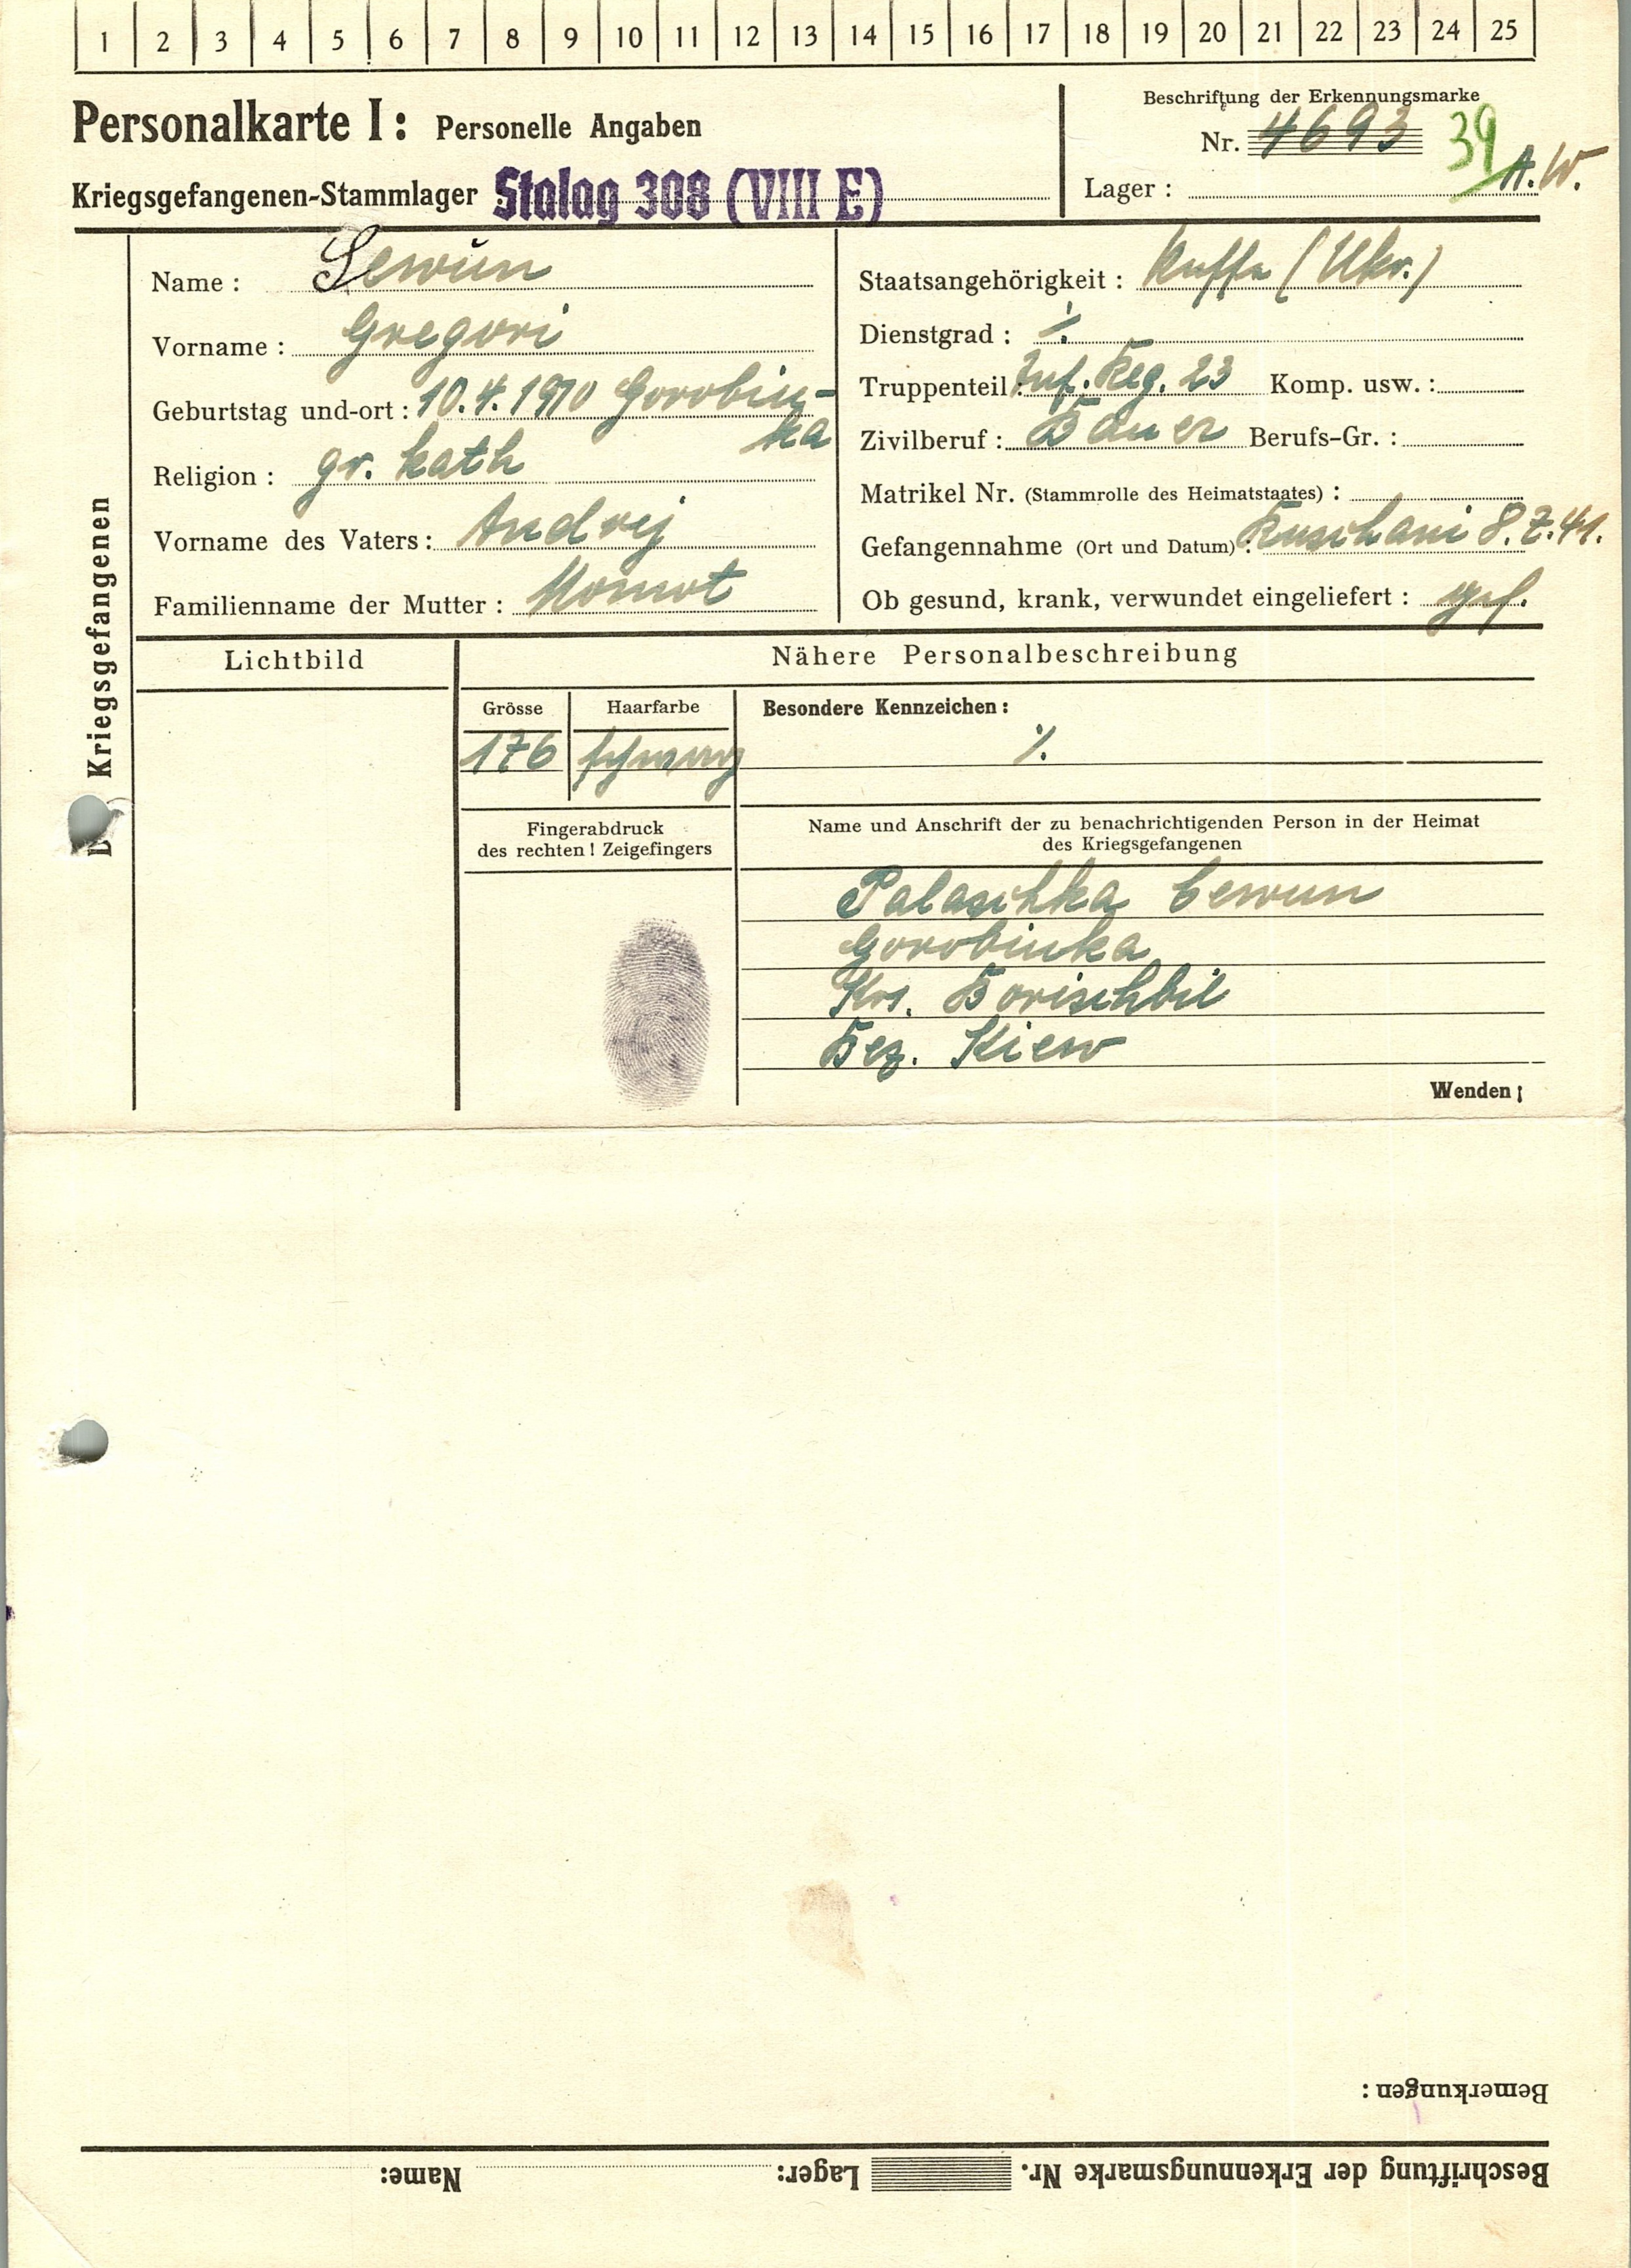 1 2 3 4 5 6 7 8 9 10 11 12 13 14 15 16 17 18 19 20 21 22 23 24 25
Personalkarte I: Personelle Angaben
Kriegsgefangenen-Stammlager Stalag 308 (VIII E)
Beschriftung der Erkennungsmarke
Nr. 4693 39
Lager: A.W.
Des Kriegsgefangenen
Name: Sewun
Vorname: Gregori
Geburtstag und-ort: 10.4.1910 Gorobin-
ka
Religion: gr. kath
Vorname des Vaters: Andrej
Familienname der Mutter: Momot
Staatsangehörigkeit: Russe (Ukr.)
Dienstgrad: ./.
Truppenteil: Inf. Reg. 23 Komp. usw.:
Zivilberuf: Bauer Berufs-Gr.:
Matrikel Nr. (Stammrolle des Heimatstaates):
Gefangennahme (Ort und Datum): 8.7.41.
Ob gesund, krank, verwundet eingeliefert: gef.
Lichtbild
Nähere Personalbeschreibung
Grösse
176
Haarfarbe
schwarz
Besondere Kennzeichen:
./.
Fingerabdruck
des rechten! Zeigefingers
Name und Anschrift der zu benachrichtigenden Person in der Heimat
des Kriegsgefangenen
Palaschka Cewun
Gorobinka
Krs. Borischbil
Bez. Kiew
Wenden!
Bemerkungen:
Beschriftung der Erkennungsmarke Nr. Lager: Name: